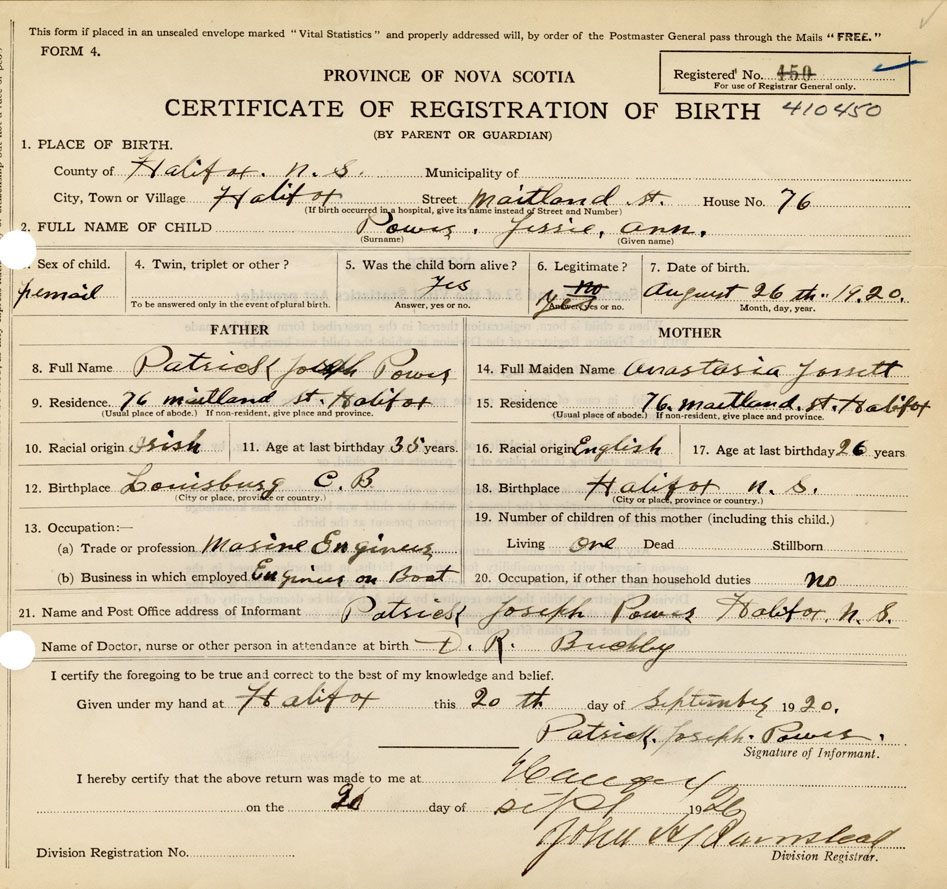 This form if placed in an unsealed envelope marked "Vital Statistics" and properly addressed will, by order of the Postmaster General pass through the Mails "FREE."
FORM 4.
Registered No. 450
For use of Registrar General only.
PROVINCE OF NOVA SCOTIA
CERTIFICATE OF REGISTRATION OF BIRTH 410450
(BY PARENT OR GUARDIAN)
1. PLACE OF BIRTH.
County of Halifax. N. S. Municipality of
City, Town or Village Halifax Street Maitland St. House No. 76
(If birth occurred in a hospital, give its name instead of Street and Number)
2. FULL NAME OF CHILD Power, Jessie, Ann.
(Surname) (Given name)
Sex of child. 4. Twin, triplet or other? 5. Was the child born alive? 6. Legitimate? 7. Date of birth.
femail yes no yes August 26 th. 1920.
To be answered only in the event of plural birth. Answer, yes or no. Answer, yes or no. Month, day, year.
FATHER MOTHER
8. Full Name Patrick Joseph Power 14. Full Maiden Name Anastasia
9. Residence. 76 maitland st. Halifax 15. Residence 76. maitland. st. Halifax
(Usual place of abode.) If non-resident, give place and province. (Usual place of abode.) If non-resident, give place and province.
10. Racial origin Irish 11. Age at last birthday 35 years. 16. Racial origin English 17. Age at last birthday 26 years
12. Birthplace Louisburg C. B 18. Birthplace Halifax N. S.
(City or place, province or country.) (City or place, province or country.)
13. Occupation:— 19. Number of children of this mother (including this child.)
(a) Trade or profession Marine Engineer Living one Dead Stillborn
(b) Business in which employed Engineer on Boat 20. Occupation, if other than household duties no
21. Name and Post Office address of Informant Patrick Joseph Power Halifax. N. S.
Name of Doctor, nurse or other person in attendance at birth D. R. Buckley
I certify the foregoing to be true and correct to the best of my knowledge and belief.
Given under my hand at Halifax this 20 th day of September 1920.
Patrick. Joseph. Power.
Signature of Informant.
I hereby certify that the above return was made to me at
on the day of Sept 1920
John A
Division Registrar.
Division Registration No.